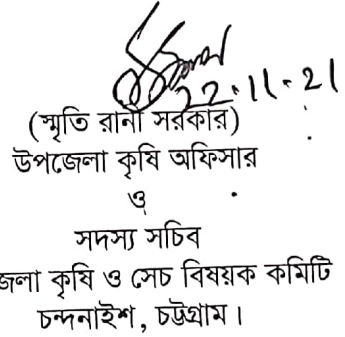 22.11.21
(স্মৃতি রানী সরকার)
উপজেলা কৃষি অফিসার
ও
সদস্য সচিব
জেলা কৃষি ও সেচ বিষয়ক কমিটি
চন্দনাইশ, চট্টগ্রাম।